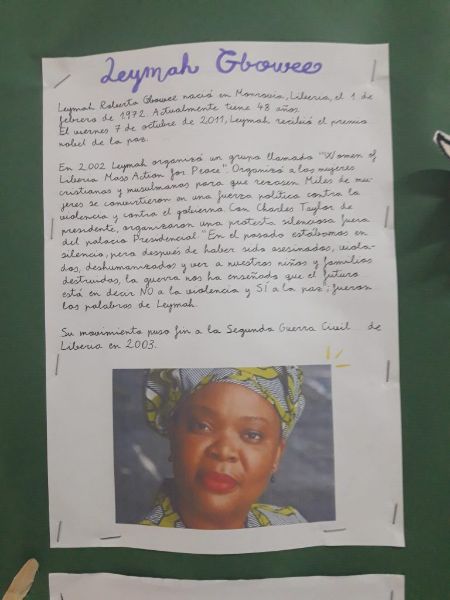 Leymah Gbowee
Leymah Roberta Gbowee nació en Monrovia, Liberia, el 1 de
febrero de 1972. Actualmente tiene 48 años.
El viernes 7 de octubre de 2011, Leymah recibió el premio
nobel de la paz.
En 2002 Leymah organizó un grupo llamado "Women of
Liberia Mass Action for Peace". Organizó a las mujeres
cristianas y musulmanas para que rezasen. Miles de mu-
jeres se convirtieron en una fuerza política contra la
violencia y contra el gobierno. Con Charles Taylor de
presidente, organizaron una protesta silenciosa fuera
del palacio Presidencial. "En el pasado estábamos en
silencio, pero después de haber sido asesinadas, viola-
das, deshumanizadas y ver a nuestros niños y familias
destruidas, la guerra nos ha enseñado que el futuro
está en decir NO a la violencia y SÍ a la paz"; fueron
las palabras de Leymah.
Su movimiento puso fin a la Segunda Guerra Civil de
Liberia en 2003.